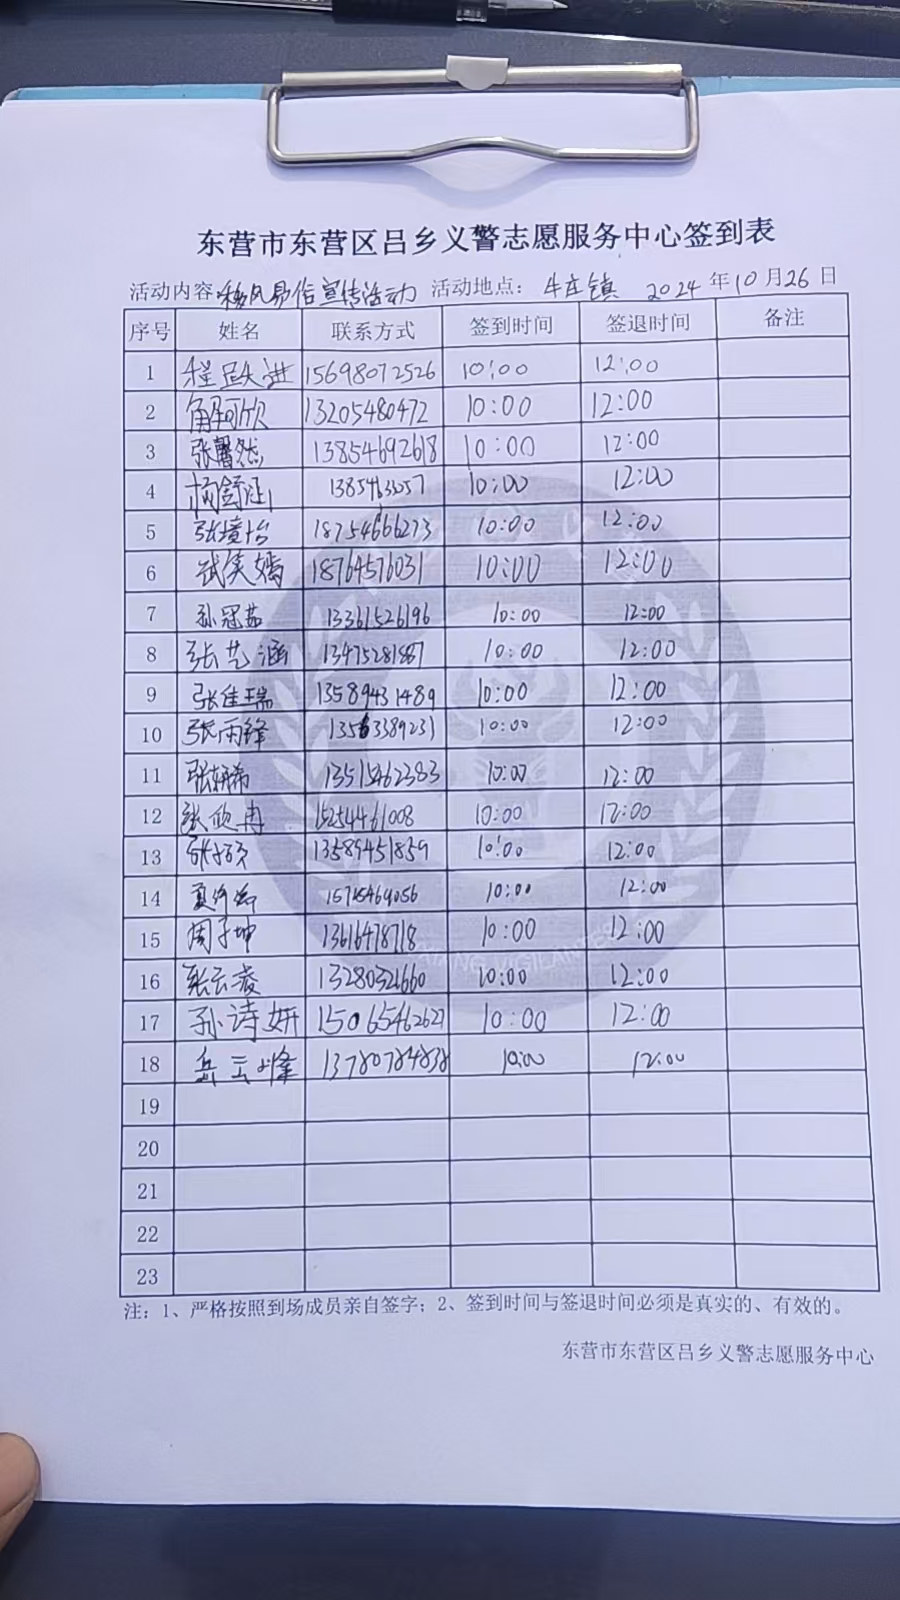 东营市东营区吕乡义警志愿服务中心签到表
活动内容:移风易俗宣传活动 活动地点: 牛庄镇 2024年10月26日
序号 姓名 联系方式 签到时间 签退时间 备注
1 程跃进 15698072526 10:00 12:00
2 解可欣 13205480472 10:00 12:00
3 张馨然 13854692618 10:00 12:00
4 杨舒涵 10:00 12:00
5 张境怡 18754666273 10:00 12:00
6 武笑嫣 18764576031 10:00 12:00
7 孙冠茹 13361526196 10:00 12:00
8 张艺涵 10:00 12:00
9 张佳瑞 13589431489 10:00 12:00
10 张雨锋 13563389231 10:00 12:00
11 13515462383 10:00 12:00
12 张欣冉 15254461008 10:00 12:00
13 13589451859 10:00 12:00
14 10:00 12:00
15 周子坤 13616478718 10:00 12:00
16 张云凌 13280321660 10:00 12:00
17 孙诗妍 15065462627 10:00 12:00
18 岳云峰 13780784838 10:00 12:00
19
20
21
22
23
注: 1、严格按照到场成员亲自签字; 2、签到时间与签退时间必须是真实的、有效的。
东营市东营区吕乡义警志愿服务中心